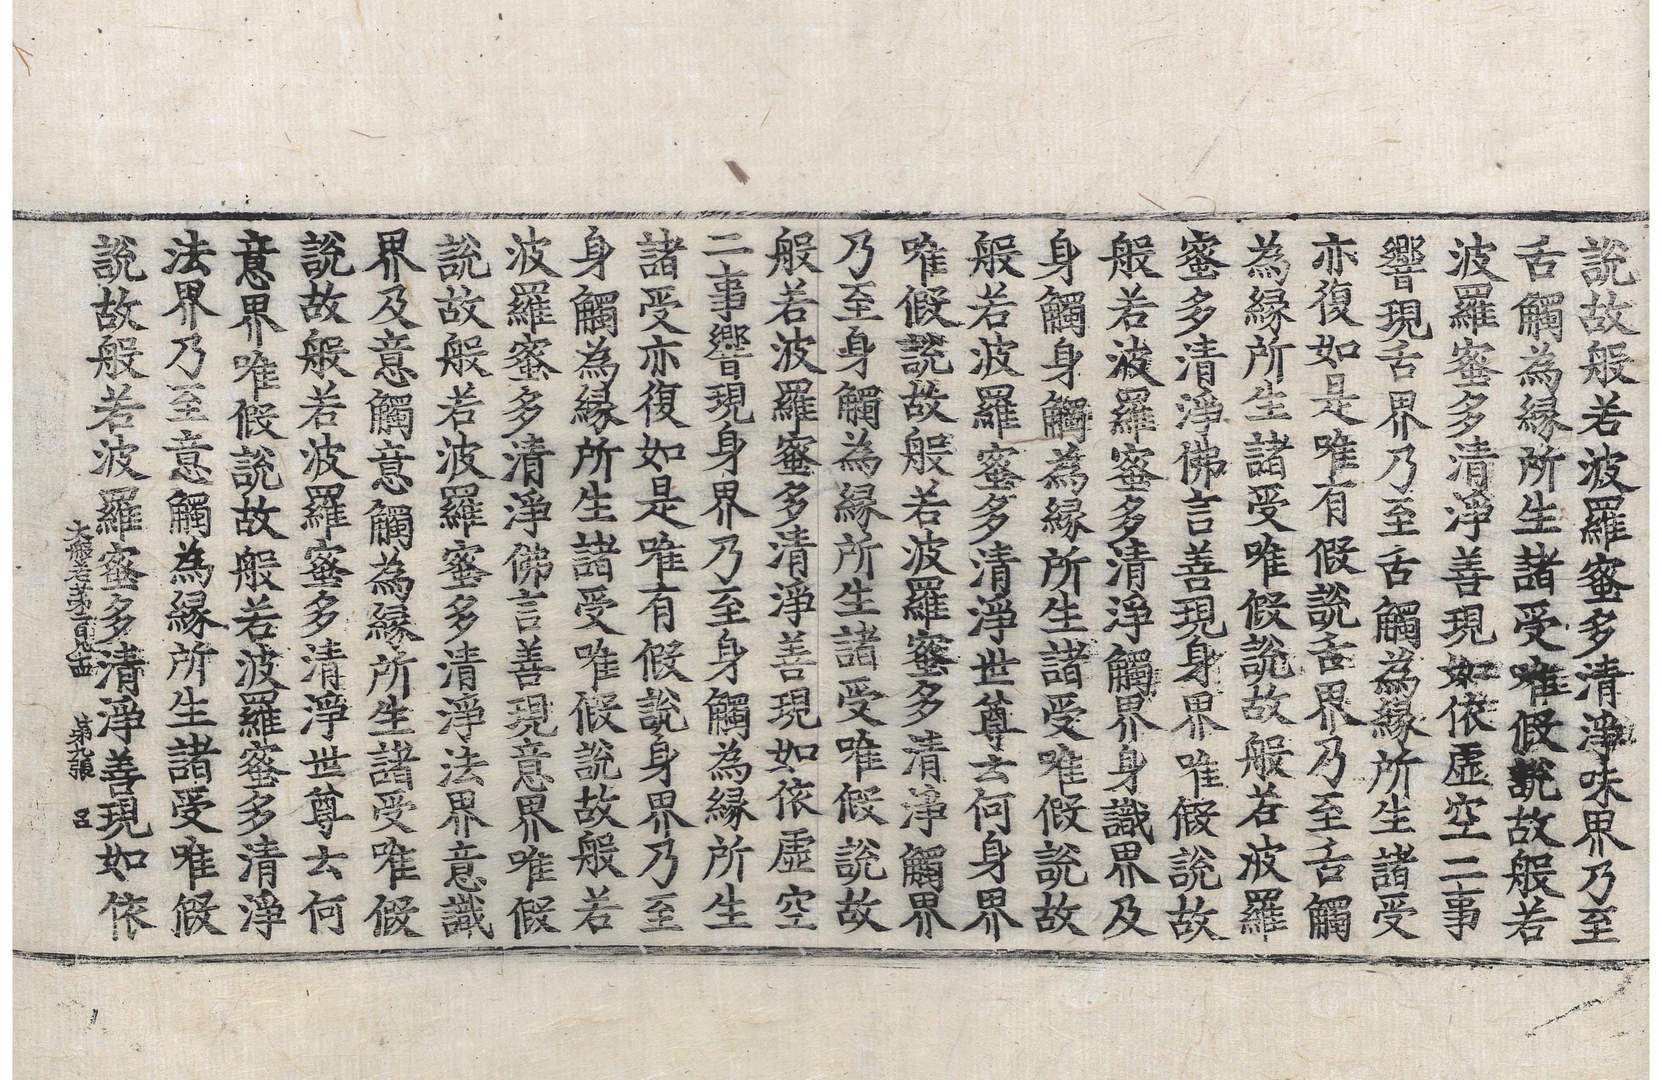 說故般若波羅蜜多清淨味界乃至
舌觸為緣所生諸受唯假說故般若
波羅蜜多清淨善現如依虛空二事
響現舌界乃至舌觸為緣所生諸受
亦復如是唯有假說舌界乃至舌觸
為緣所生諸受唯假說故般若波羅
蜜多清淨佛言善現身界唯假說故
般若波羅蜜多清淨觸界身識界及
身觸身觸為緣所生諸受唯假說故
般若波羅蜜多清淨世尊云何身界
唯假說故般若波羅蜜多清淨觸界
乃至身觸為緣所生諸受唯假說故
般若波羅蜜多清淨善現如依虛空
二事響現身界乃至身觸為緣所生
諸受亦復如是唯有假說身界乃至
身觸為緣所生諸受唯假說故般若
波羅蜜多清淨佛言善現意界唯假
說故般若波羅蜜多清淨法界意識
界及意觸意觸為緣所生諸受唯假
說故般若波羅蜜多清淨世尊云何
意界唯假說故般若波羅蜜多清淨
法界乃至意觸為緣所生諸受唯假
說故般若波羅蜜多清淨善現如依
大般若第二百九 第九張 呂